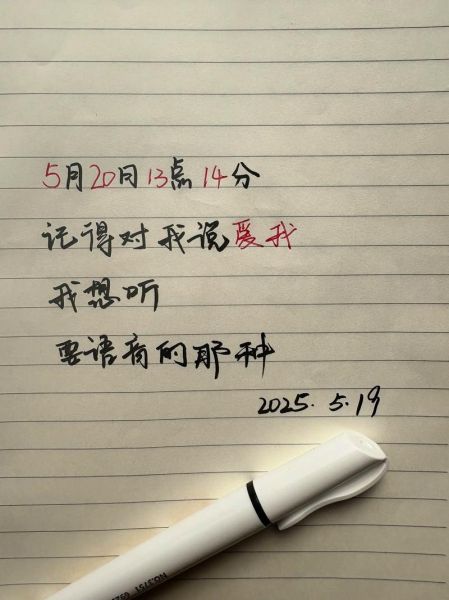 5月20日13点14分
记得对我说爱我
我想听
要语音的那种
2025.5.19